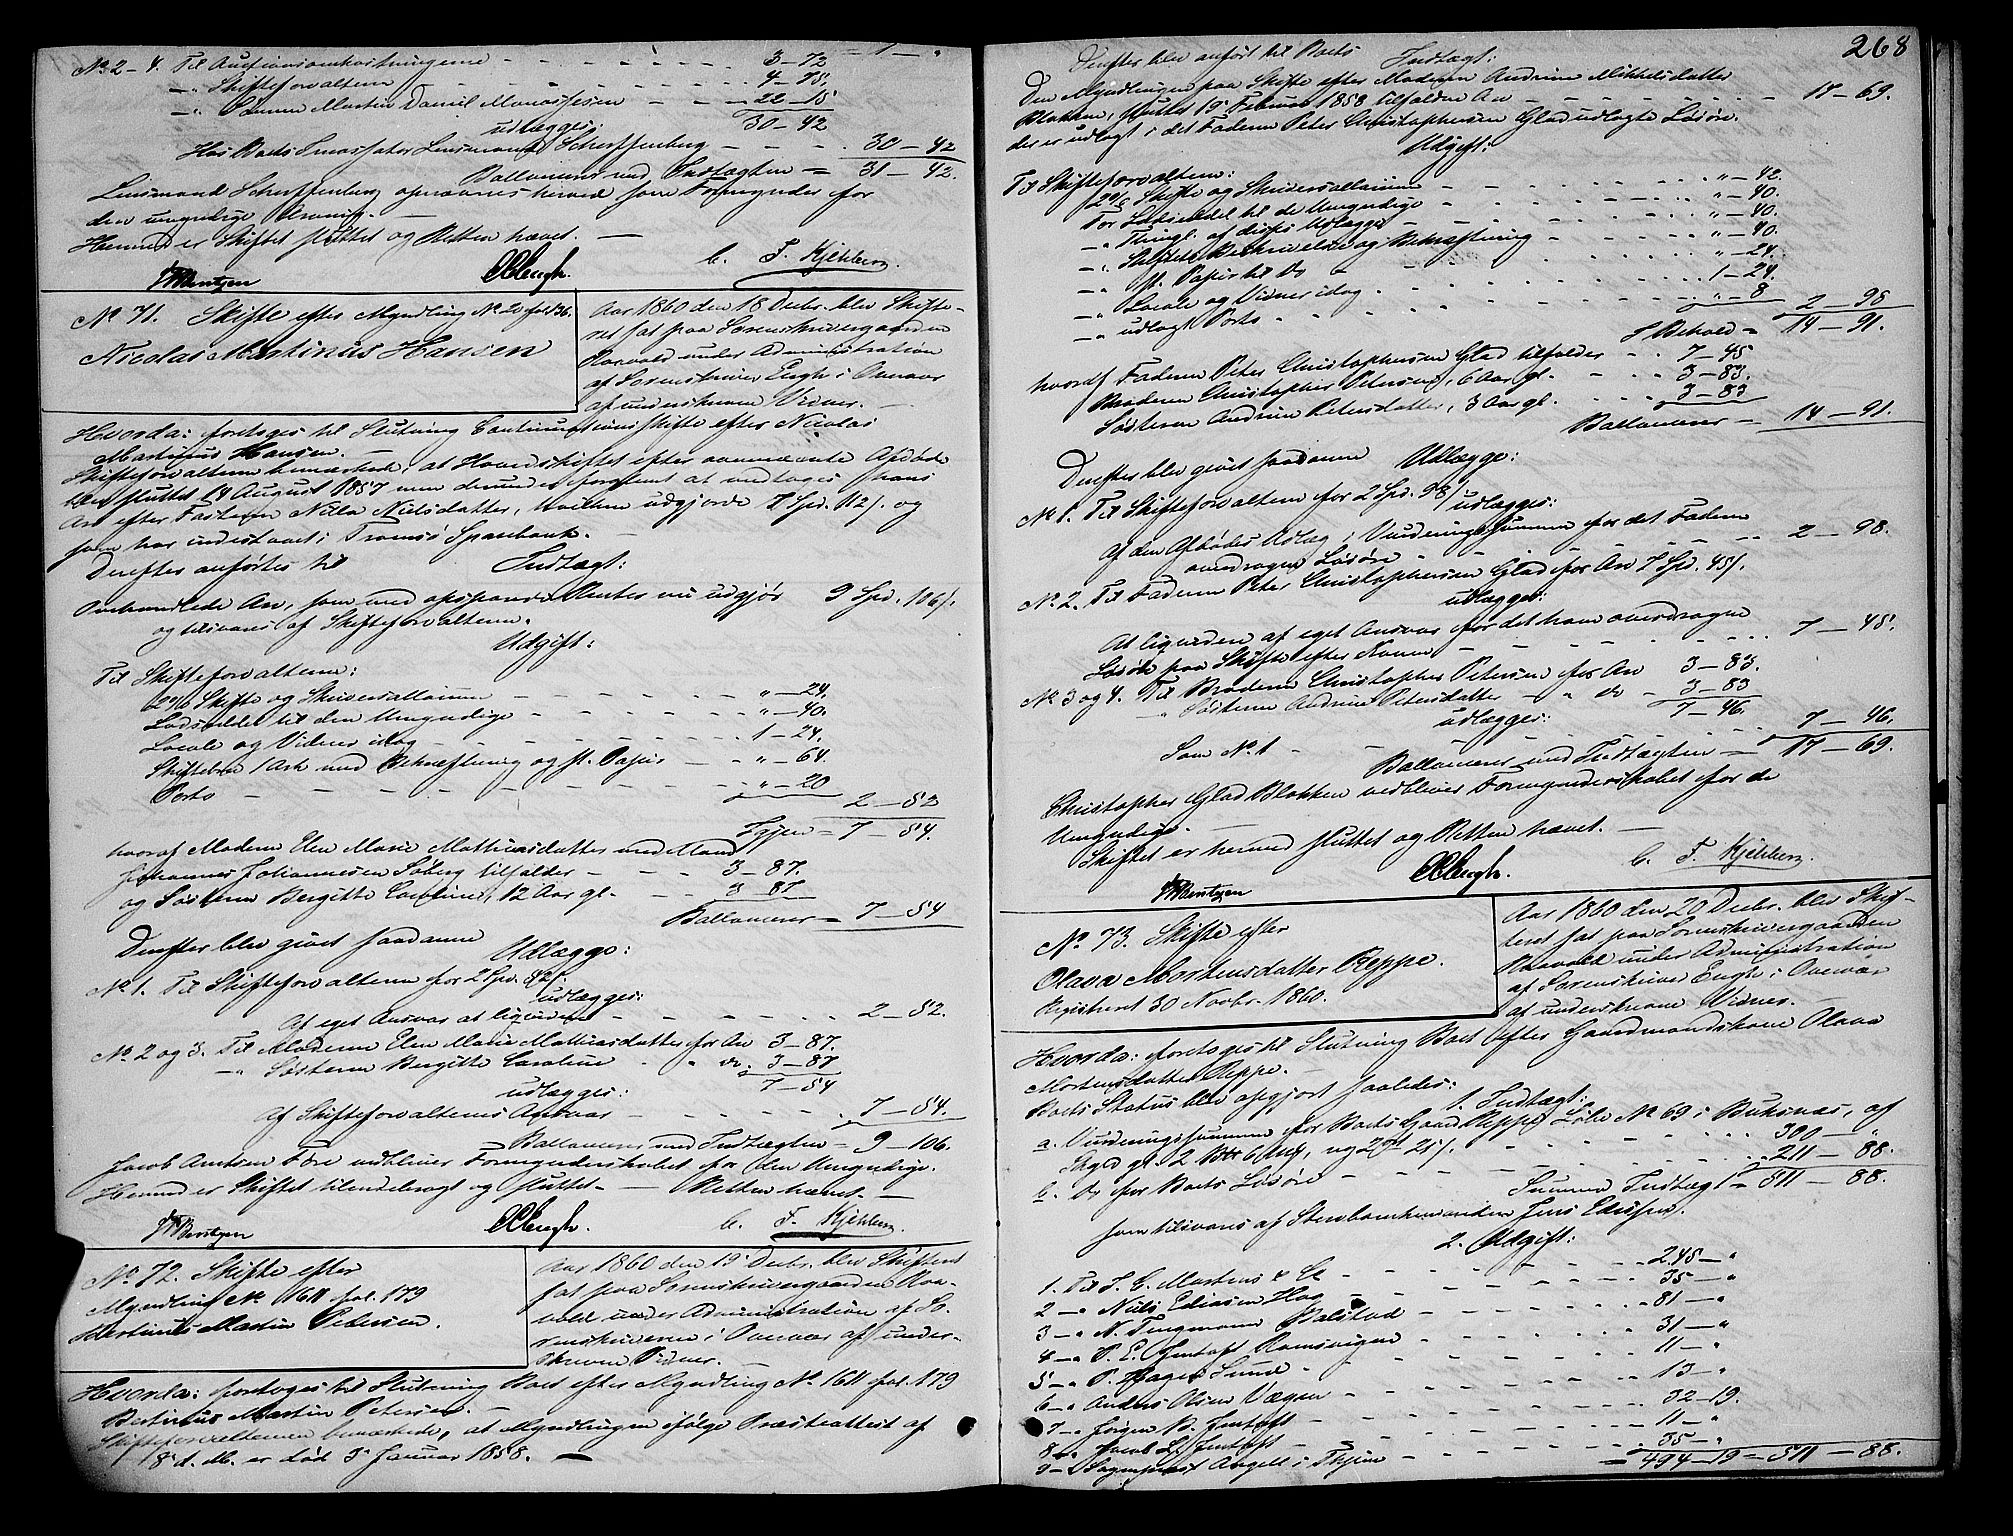 No 2-4. Til Auctionsomkostningerne - - - 3-72
-"- Skifteforvalteren - - - 4-75
-"- Sønnen Martin Daniel Manassesen - - - 22-15
30-42
udlægges:
Hos Boets Incassator Lensmand Scherffenberg - - - 30-42
Ballancerer med Indtægten = 31-42.
Lensmand Scherffenberg opnævnes herved som Formynder for
den umyndige Arving. -
Hermed er Skiftet sluttet og Retten hævet. -
CEngh. C. F. Kjelberg.
Berntzen
No 71. Skifte efter Myndling No 20 fol 36.
Nicolai Martinus Hansen
Aar 1860 den 18 Decbr. blev Skifte-
ret sat paa Sorenskrivergaarden
Raavold under Administration
af Sorenskriver Engh i Overvær
af underskrevne Vidner. -
Hvorda: foretoges til Slutning Continuationsskifte efter Nicolai
Martinus Hansen. -
Skifteforvalteren bemærkede, at Hovedskiftet efter ovennævnte Afdøde
blev sluttet 14 August 1857 men derunder forglemt at medtages hans
Arv efter Fasteren Nilla Nielsdatter, hvilken udgjorde 7 Spd. 112 /. og
som har indestaaet i Tromsø Sparebank. -
Derefter anførtes til Indtægt:
Omhandlede Arv, som med opsparede Renter nu udgjør 9 Spd. 106 /.
og tilsvares af Skifteforvalteren.
Udgift:
Til Skifteforvalteren:
2 9/6 Skifte og Skriversallairum - - - " -24.
Lodseddel til den Umyndige - - - " -40.
Locale og Vidner idag - - - 1-24.
Skiftebrev 1 Ark med Bekræftning og st. Papir - - " -64.
Porto - - - " -20
2-52
Igjen = 7-54.
hvoraf Moderen Elen Marie Mathiasdatter med Mand
Johannes Johannesen Søberg tilfalder - - - 3-87.
og Søsteren Bergitte Caroline, 12 Aar gl. - - - 3 87
Ballancerer = 7-54
Derefter blev givet saadanne Udlægge:
No 1. Til Skifteforvalteren for 2 Spd. 52 /.
udlægges:
Af eget Ansvar at liqvidere - - - 2-52.
No 2 og 3. Til Moderen Elen Marie Mathiasdatter for Arv 3-87.
-"- Søsteren Bergitte Caroline " do. 3-87
7-54
udlægges:
Af Skifteforvalterens Ansvar - - - 7-54.
Ballancerer med Indtægten = 9-106.
Jacob Arntsen Fore vedbliver Formynderskabet for den Umyndige.
Hermed er Skiftet tilendebragt og sluttet. - Retten hævet. -
CEngh. C. F. Kjelberg.
Berntzen
No 72. Skifte efter
Myndling No 1611 fol. 179
Bertinus Martin Petersen.
Aar 1860 den 19 Decbr. blev Skifteret
sat paa Sorenskrivergaarden Raa-
vold under Administration af So-
renskriveren i Overvær af under-
skrevne Vidner.
Hvorda: foretoges til Slutning Boet efter Myndling No 1611 fol. 179
Bertinus Martin Petersen. -
Skifteforvalteren bemærkede, at Myndlingen ifølge Præsteattest af
18 d. M. er død 3 Januar 1858. -
268
Derefter blev anført til Boets Indtægt:
Den Myndlingen paa Skifte efter Moderen Andrine Mikkelsdatter
Blokken, sluttet 19 Februar 1858 tilfaldne Arv - - - 17-69.
der er udlagt i det Faderen Peter Christophersen Glad udlagte Løsøre.
Udgift:
Til Skifteforvalteren:
2 9/6 Skifte og Skriversallairum - - - " -42.
For Lodseddel til de Umyndige - - - " -40.
-"- Thingl. af disses Udlægge - - - " -40.
-"- Skiftets Beskrivelse og Bekræftning - - - " -40.
-"- st. Papir til do - - - " -24.
-"- Locale og Vidner idag - - - 1-24.
-"- udlagt Porto - - - " -8
2-98
I Behold = 14-91.
hvoraf Faderen Peter Christophersen Glad tilfalder - - 7-45
Broderen Christopher Petersen, 6 Aar gl. - - - 3-83.
Søsteren Andrine Petersdatter, 3 Aar gl. - - - 3-83
Ballancerer - 14-91.
Derefter blev givet saadanne Udlægge:
No 1. Til Skifteforvalteren for 2 Spd. 98 /.
udlægges:
Af den Afdødes Udlæg i Vurderingssummen for det Faderen
overdragne Løsøre - - - 2-98.
No 2. Til Faderen Peter Christophersen Glad for Arv 7 Spd. 45 /.
udlægges:
At liqvidere af eget Ansvar for det ham overdragne
Løsøre paa Skifte efter Konen - - - 7-45.
No 3 og 4. Til Broderen Christopher Petersen for Arv 3-83.
-"- Søsteren Andrine Petersdatter - " do - 3-83
7-46.
udlægges:
Som No 1 - - - 7-46.
Ballancerer med Indtægten - 17-69.
Christopher Glad Blokken vedbliver Formynderskabet for de
Umyndige. -
Skiftet er hermed sluttet og Retten hævet. -
CEngh. C. F. Kjelberg.
Berntzen
No 73. Skifte efter
Olava Mortensdatter Reppe.
Registreret 30 Novbr. 1860.
Aar 1860 den 20 Decbr. blev Skif-
teret sat paa Sorenskrivergaarden
Raavold under Administration
af Sorenskriver Engh i Overvær
af underskrevne Vidner. -
Hvorda: foretoges til Slutning Boet efter Gaardmandskone Olava
Mortensdatter Reppe. -
Boets Status blev opgjort saaledes:
1. Indtægt:
a. Vurderingssummen for Boets Gaard Reppe, Løbe No 69 i Buksnæs, af
Skyld gl. 2 , ny 2 ort 21 /. - - - 300-"
b. Do for Boets Løsøre - - - 211-88.
Summa Indtægt = 511-88.
som tilsvares af Stervboenkemanden Jens Edissen.
2. Udgift:
1. Til J. C. Martens & C - - - 245-"
2 -"- Niels Ediasen Hag - - - 35-"
3 -"- N. Tingmann Balstad - - - 81-"
4 -"- P. E. Jentoft Ramsvigen - - - 31-"
5 -"- P. Hagen Sund - - - 11-"
6 -"- Anders Olsen Vægen - - - 13-"
7 -"- Jørgen B. Jentoft - - - 32-19.
8 -"- Jacob L. Jentoft - - - 11-"
9 -"- Sogneprest Angell i Thjen - - - 35-"
= 494-19 = 511-88.